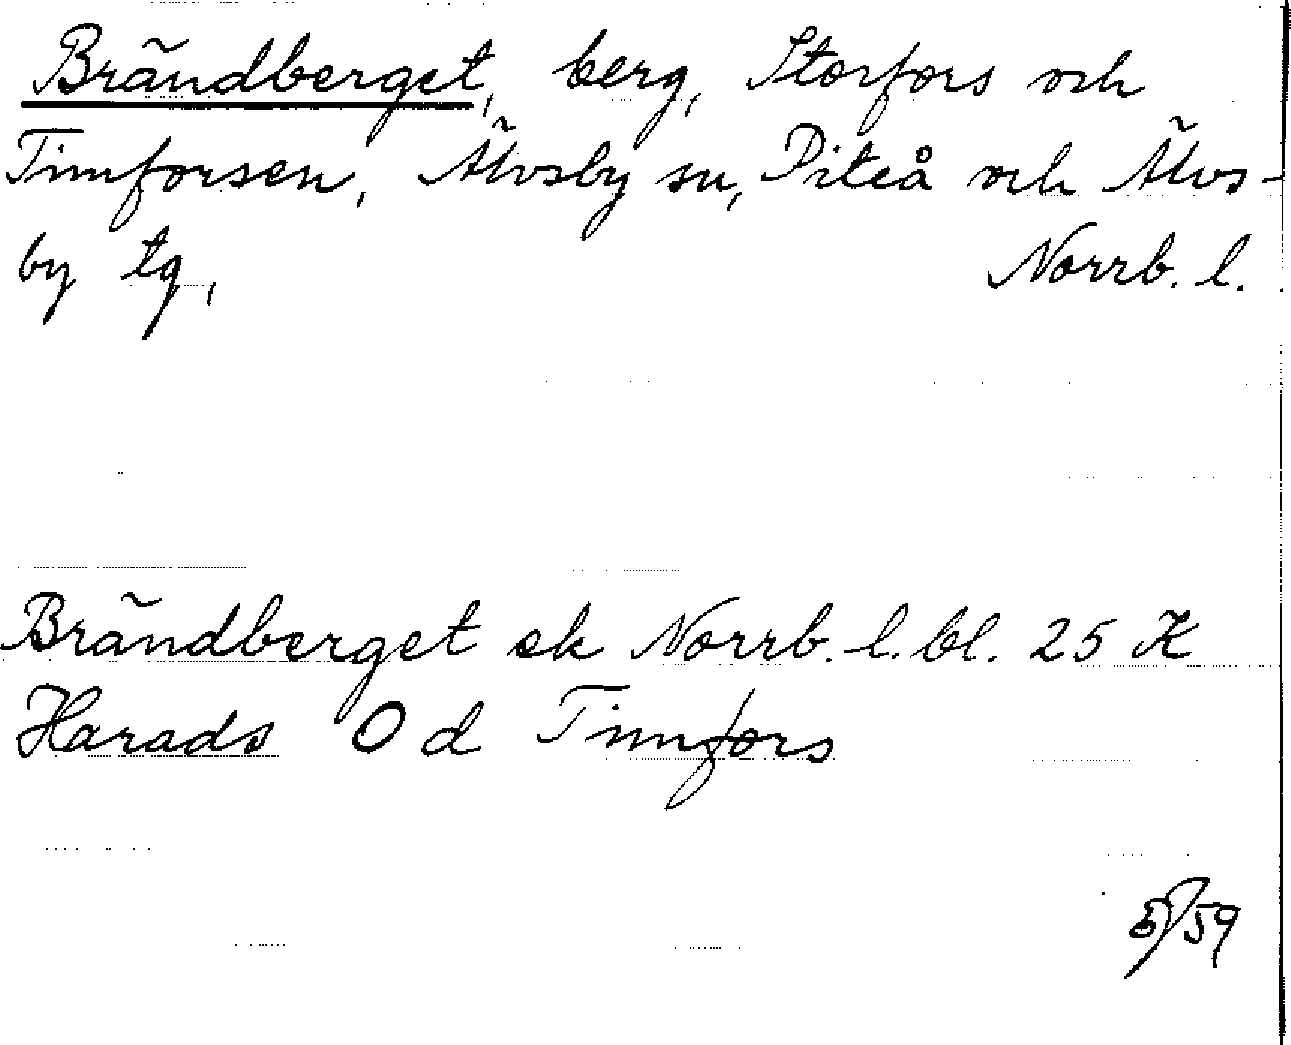 Brändberget, berg, Storfors och
Timforsen, Älvsby sn, Piteå och Älvs-
by tg, Norrb. l.
Brändberget ek Norrb. l. bl. 25 K
Harads O d Timfors
/59